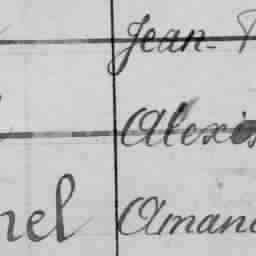 Jean-
Alexis
nel Aman